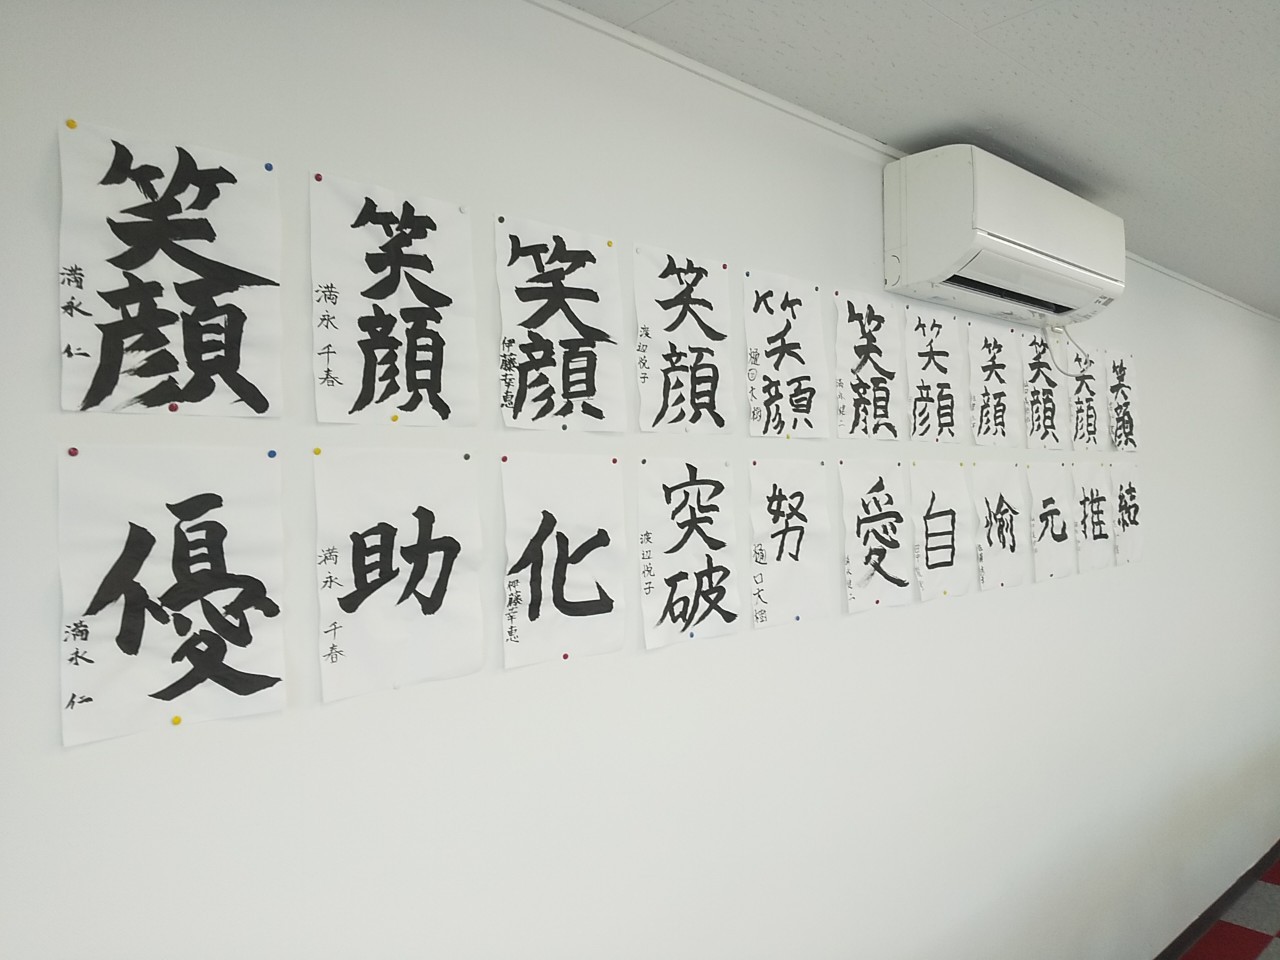 笑顔
満永 仁
笑顔
満永 千春
笑顔
伊藤幸恵
笑顔
渡辺悦子
笑顔
樋口大樹
笑顔
笑顔
笑顔
笑顔
笑顔
笑顔
優
満永 仁
助
満永 千春
化
伊藤幸恵
突破
渡辺悦子
努
樋口大樹
愛
自
愉
元
推
結